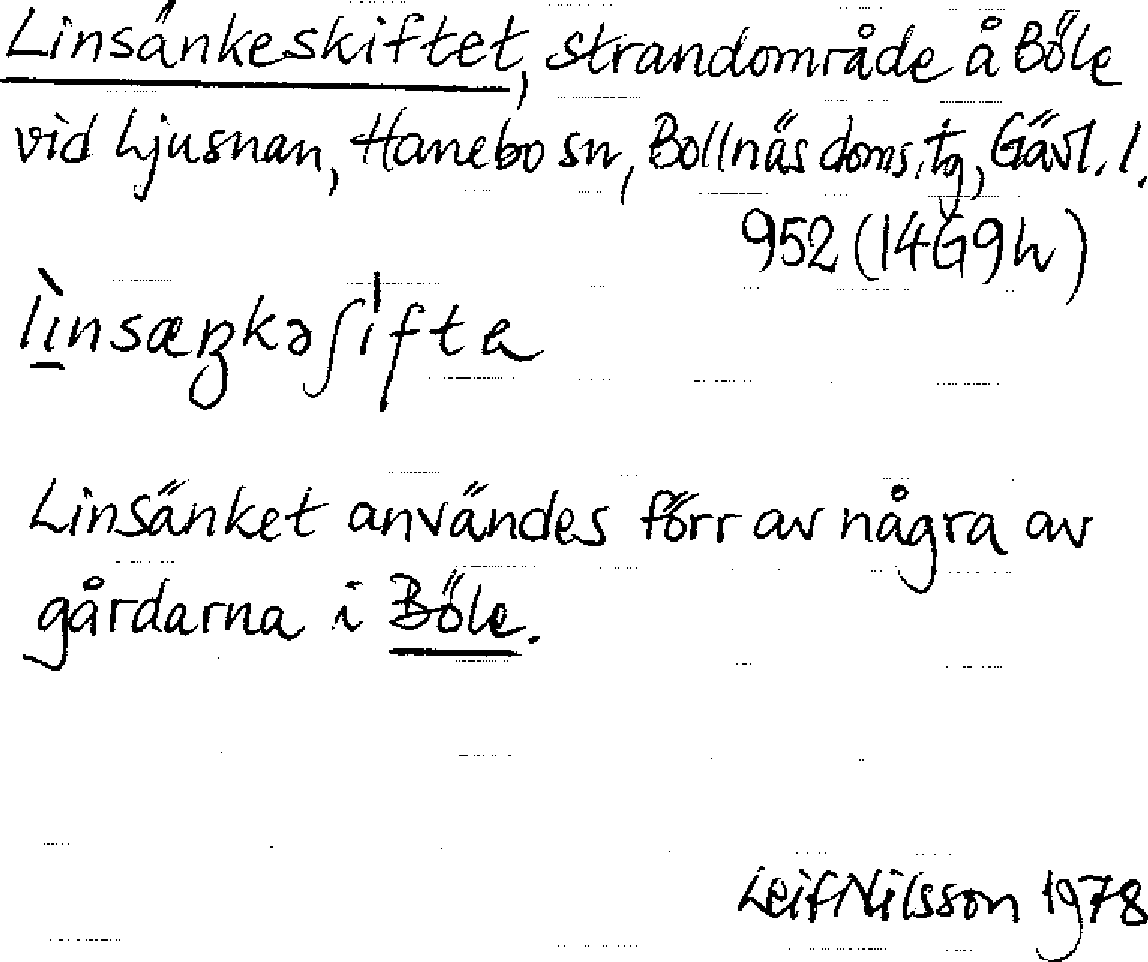 Linsänkeskiftet, strandområde å Böle
vid Ljusnan, Hanebo sn, Bollnäs doms. tg, Gävl. l.
952 (14G9h)
lı̀nsæŋkəʃıfta
Linsänket användes förr av några av
gårdarna i Böle.
Leif Nilsson 1978